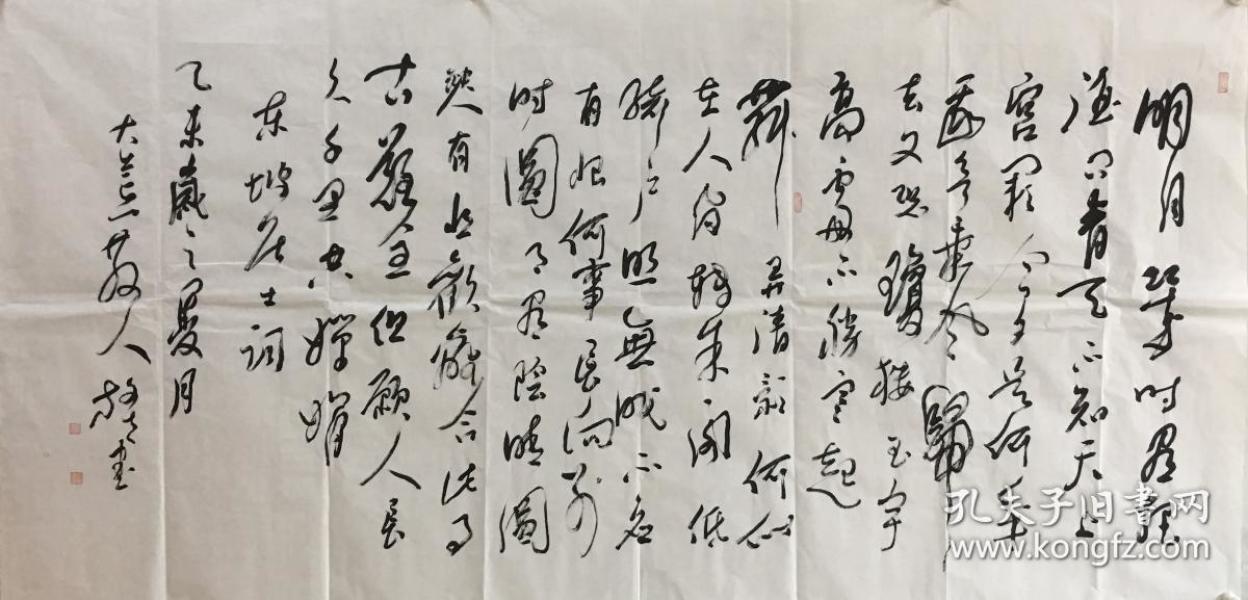 明月幾时有把
酒问青天不知天上
宫阙今夕是何年
我欲乘风歸
去又恐瓊楼玉宇
高處不勝寒起
舞弄清影何似
在人间转朱阁低
綺户照無眠不应
有恨何事長向别
时圓月有陰晴圓
缺人有悲歡離合此事
古難全但願人長
久千里共嬋娟
东坡居士词
乙未歲之夏月
大荒散人
孔夫子旧書网
www.kongfz.com